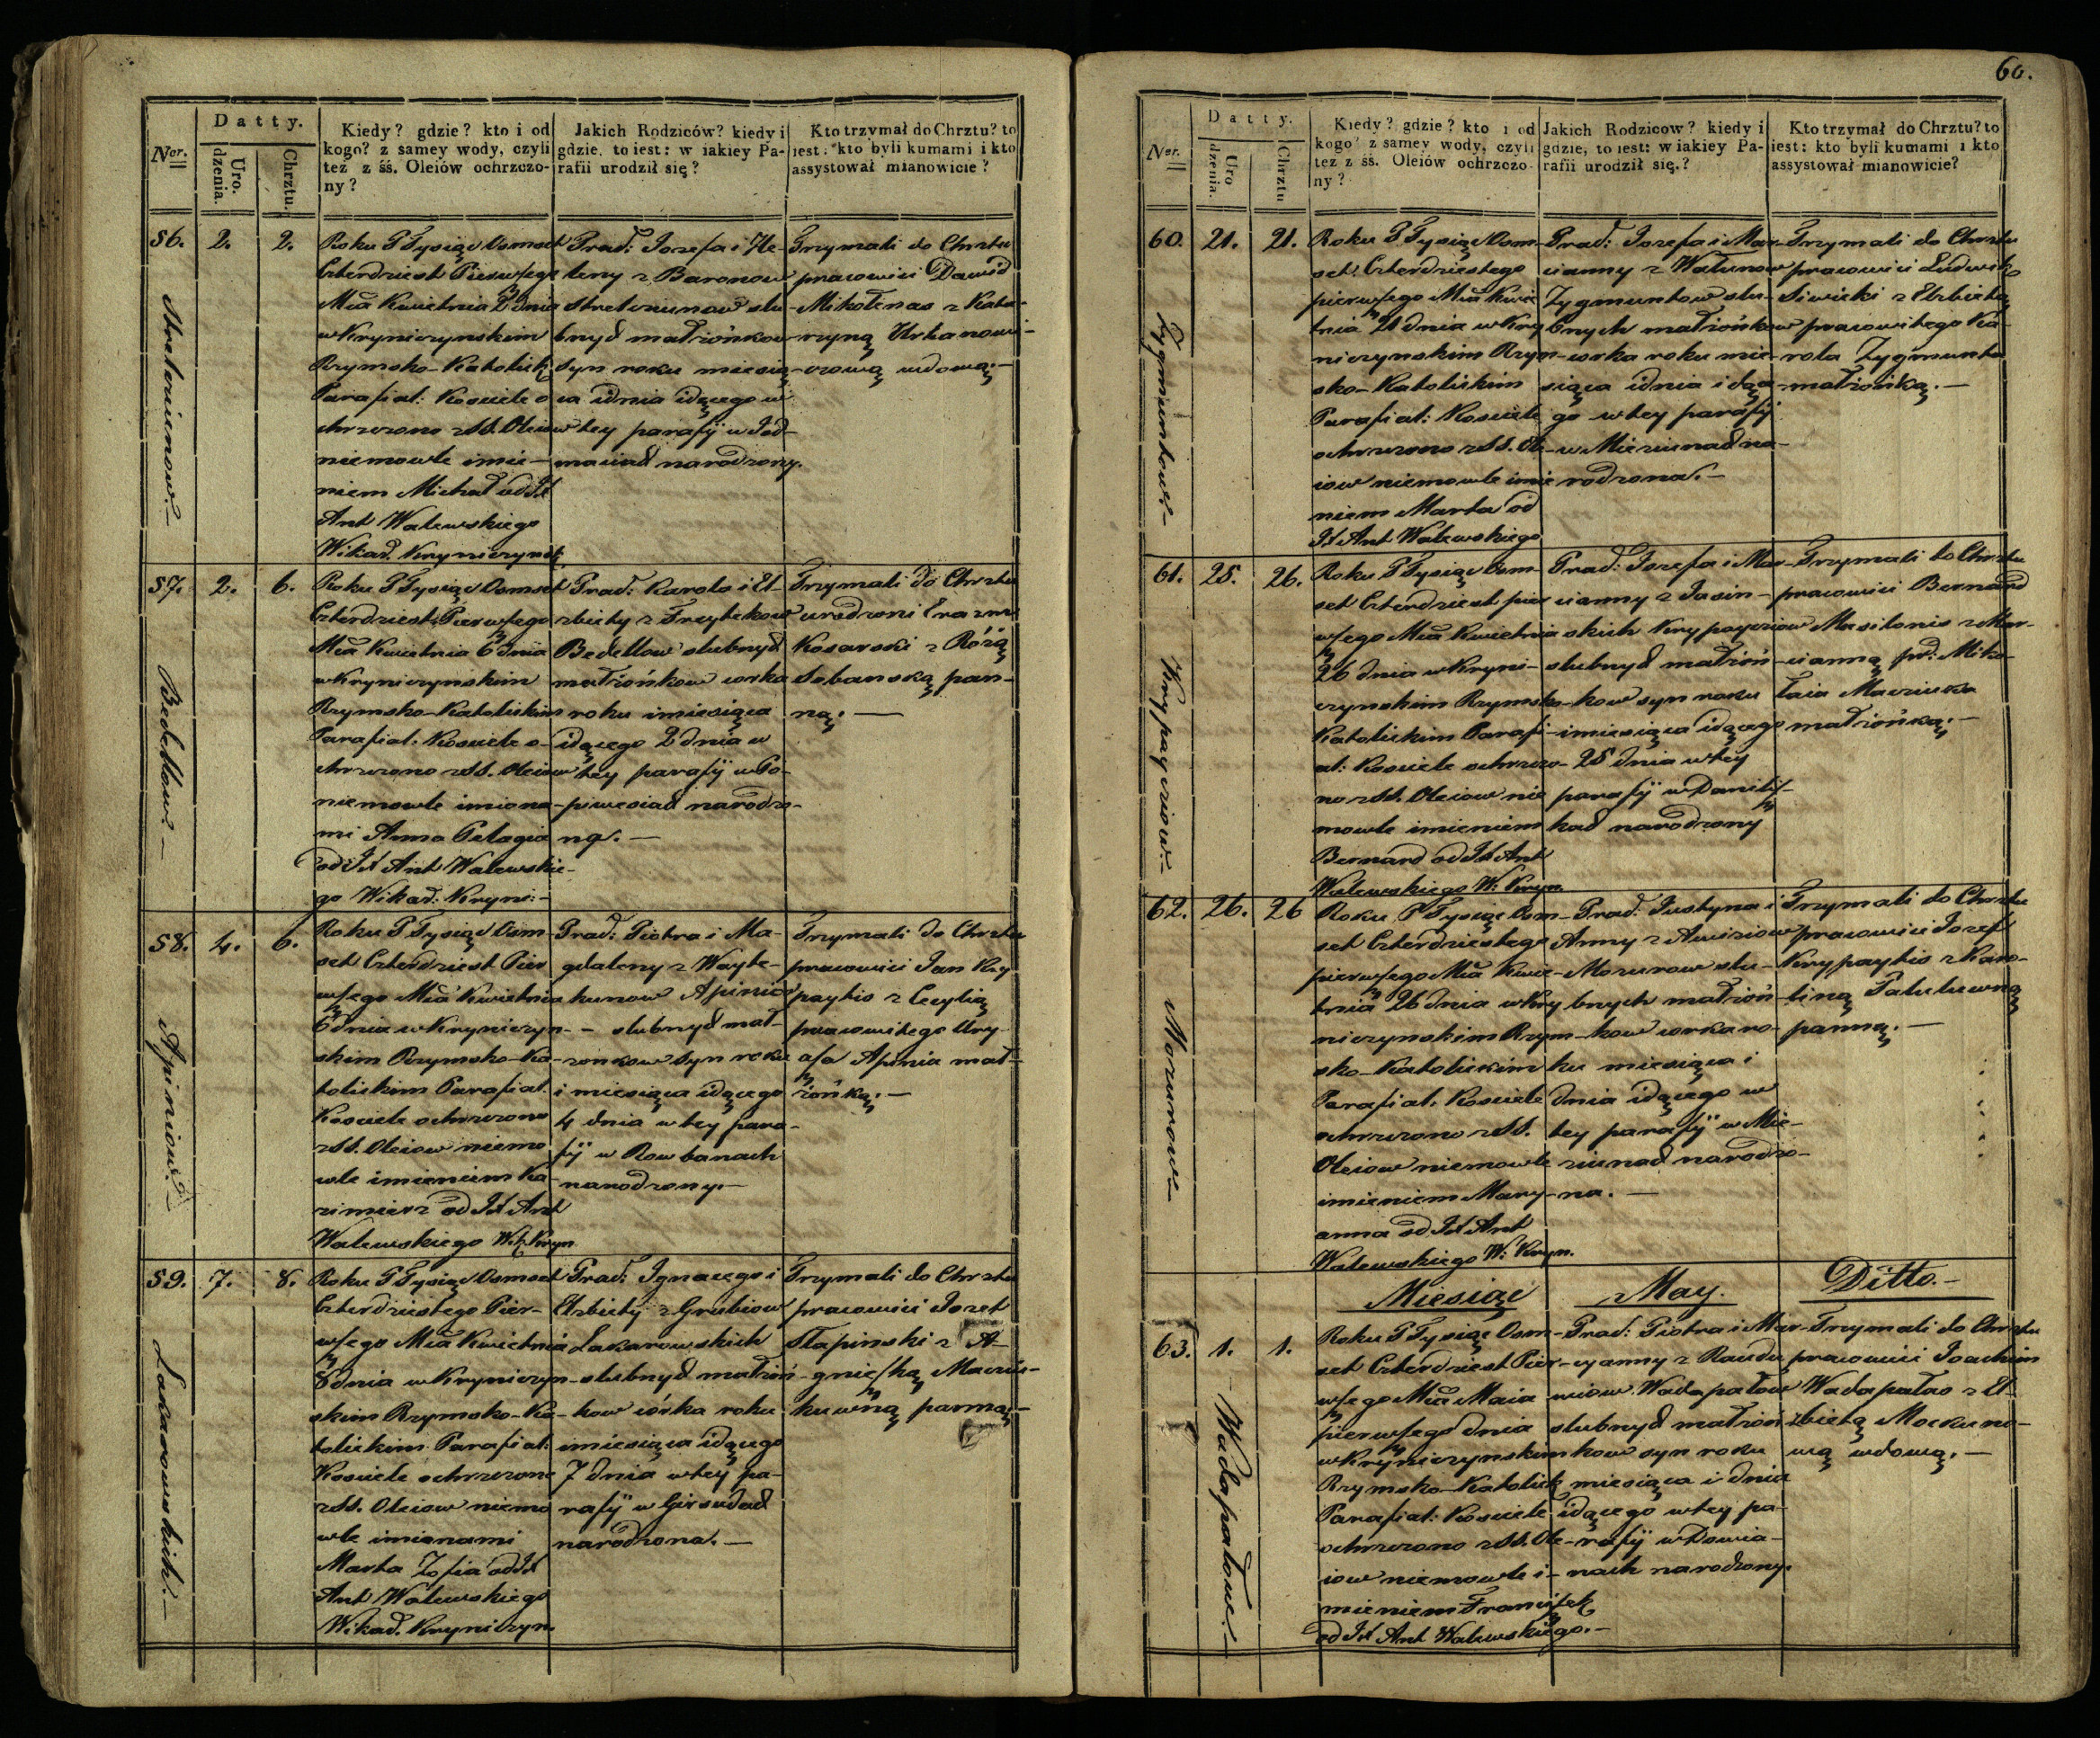 60.
Datty.
Ner.
Uro.
dzenia.
Chrztu.
Kiedy? gdzie? kto i od
kogo? z samey wody, czyli
też z śś. Oleiów ochrzczo-
ny?
Jakich Rodziców? kiedy i
gdzie, to iest: w iakiey Pa-
rafii urodził się?
Kto trzymał do Chrztu? to
iest: kto byli kumami i kto
assystował mianowicie?
56.
2.
2.
Roku P Tysiąc Osmset
Czterdziest Pierwszego
Mca Kwietnia 2 dnia
w Kryniczynskim
Rzymsko-Katolick
Parafial: Kosciele o
chrzczono z SS. Oleiow
niemowle imie-
niem Michał od
Ant Walewskiego
Wikar. Kryniczynsk
Prac: Jozefa i He-
leny z Baronow
slu-
bnych małżonkow
syn roku miesią-
ca i dnia idącego w
tey parafij w Jod-
narodzony.
Trzymali do Chrztu
pracowici Dawid
Mikołenas z Kata-
rzyną Urbanowi-
czową wdową.-
57.
2.
6.
Bedellow.-
Roku P Tysiąc Osmset
Czterdziest Pierwszego
Mca Kwietnia 6 dnia
w Kryniczynskim
Rzymsko-Katolickim
Parafial. Kosciele o-
chrzczono z SS. Oleiow
niemowle imiona-
mi Anna Pelagia
od Ant Walewskie-
go Wikar: Kryni:-
Prac: Karola i El-
zbiety z Freytekow
Bedellow slubnych
małżonkow corka
roku i miesiąca
idącego 2 dnia w
tey parafij w Po-
narodzo-
na.-
Trzymali do Chrztu
urodzeni Erazm
Kosarski z Różą
Sobanską pan-
ną.-
58.
4.
6.
Apiniow.-
Roku P Tysiąc Osm-
set Czterdziest Pier
wszego Mca Kwietnia
6 dnia w Kryniczyn-
skim Rzymsko-Ka-
tolickim Parafial.
Kosciele ochrzczono
z SS. Oleiow niemo
wle imieniem Ka-
zimierz od Ant
Walewskiego Wik Kryn
Prac: Piotra i Ma-
gdaleny z Wayte-
kunow Apinio
- slubnych mał-
zonkow syn roku
i miesiąca idącego
4 dnia w tey para-
fij w Rowbanach
narodzony.-
Trzymali do Chrztu
pracowici Jan Kry
paytis z Cecylią
pracowitego Ury-
asza Apinia mał-
żonką.-
59.
7.
8.
Lakarowskich.-
Roku P Tysiąc Osmset
Czterdziestego Pier-
wszego Mca Kwietnia
8 dnia w Kryniczyn-
skim Rzymsko-Ka-
tolickim Parafial:
Kosciele ochrzczono
z SS. Oleiow niemo
wle imionami
Marta Zofia od
Ant Walewskiego
Wikar. Kryniczyn.
Prac: Ignacego i
Elzbiety z Grubiow
Lakarowskich
slubnych małżoń-
kow córka roku
i miesiąca idącego
7 dnia w tey pa-
rafij w Girsudach
narodzona.-
Trzymali do Chrztu
pracowici Jozef
Słapinski z A-
gnieszką Maciu-
kuwną panną.-
Datty.
Ner.
Uro
dzenia.
Chrztu
Kiedy? gdzie? kto i od
kogo? z samey wody, czyli
też z śś. Oleiów ochrzczo-
ny?
Jakich Rodzicow? kiedy i
gdzie, to iest: w iakiey Pa-
rafii urodził się.?
Kto trzymał do Chrztu? to
iest: kto byli kumami i kto
assystował mianowicie?
60.
21.
21.
Zygmuntow.-
Roku P Tysiąc Osm-
set Czterdziestego
pierwszego Mca Kwie
tnia 21 dnia w Kry
niczynskim Rzym-
sko-Katolickim
Parafial: Kosciele
ochrzczono z SS. Ole-
iow niemowle imie
niem Marta od
Ant Walewskiego
Prac: Jozefa i Mar-
cianny z Watunow
Zygmuntow slu-
bnych małżońkow
corka roku mie-
siąca i dnia idące-
go w tey parafij
w Mieciunach na-
rodzona.-
Trzymali do Chrztu
pracowici Ludwik
Siwicki z Elzbietą
pracowitego Ka-
rola Zygmunta
małżonką.-
61.
25.
26.
Krypayciow.-
Roku P Tysiąc Osm-
set Czterdziest pier
wszego Mca Kwietnia
26 dnia w Kryni-
czynskim Rzymsko-
Katolickim Parafi-
al: Kosciele ochrzczo-
no z SS. Oleiow nie
mowle imieniem
Bernard od Ant
Walewskiego W: Kryn.
Prac: Jozefa i Mar-
cianny z Jasin-
skich Krypayciow
slubnych małżoń-
kow syn roku
i miesiąca idącego
25 dnia w tey
parafij w Danilisz-
kach narodzony
Trzymali do Chrztu
pracowici Bernard
Masilonis z Mar-
cianną pr: Miko-
łaia Maciuka
małżońką.-
62.
26.
26
Mozurow.-
Roku P Tysiąc Osm-
set Czterdziestego
pierwszego Mca Kwie-
tnia 26 dnia w Kry
niczynskim Rzym-
sko-Katolickim
Parafial. Kosciele
ochrzczono z SS.
Oleiow niemowle
imieniem Mary-
anna od Ant
Walewskiego W: Kryn.
Prac: Justyna i
Anny z Awiziow
Mozurow slu-
bnych małżoń-
kow corka ro-
ku miesiąca i
dnia idącego w
tey parafij w Mie-
ciunach narodzo-
na.-
Trzymali do Chrztu
pracowici Jozef
Krypaytis z Karo-
liną Patulewną
panną.-
Miesiąc
May.
Ditto.-
63.
1.
1.
Wadapałow.-
Roku P Tysiąc Osm-
set Czterdziest Pier-
wszego Mca Maia
pierwszego dnia
w Krynicznynskim
Rzymsko-Katolick
Parafial: Kosciele
ochrzczono z SS. Ole-
iow niemowle i-
mieniem Franciszek
od Ant Walewskiego.-
Prac: Piotra i Mar-
cyanny z Raudu
niow Wadapałow
slubnych małżoń
kow syn roku
miesiąca i dnia
idącego w tey pa-
rafij w Dowia-
nach narodzony.
Trzymali do Chrztu
pracowici Joachim
Wadapałas z El-
zbietą Mockuno-
wą wdową.-